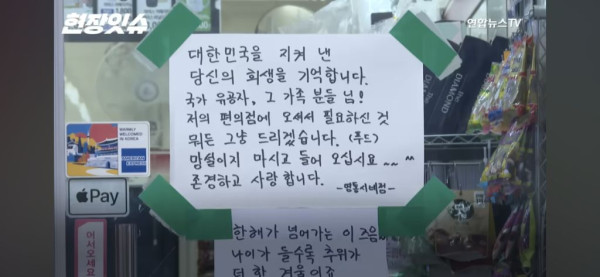 현장잇슈
연합뉴스TV
대한민국을 지켜 낸
당신의 희생을 기억합니다.
국가 유공자, 그 가족 분들 님!
저의 편의점에 오셔서 필요하신 것
뭐든 그냥 드리겠습니다. (푸드)
망설이지 마시고 들어 오십시요~~^^
존경하고 사랑합니다.
-명동시네점-
한해가 넘어가는 이 즈음
나이가 들수록 추위가
더 한 겨울이죠
WARMLY
WELCOMED
IN KOREA
AMERICAN
EXPRESS
Pay
어서오세요
The
DIAMOND